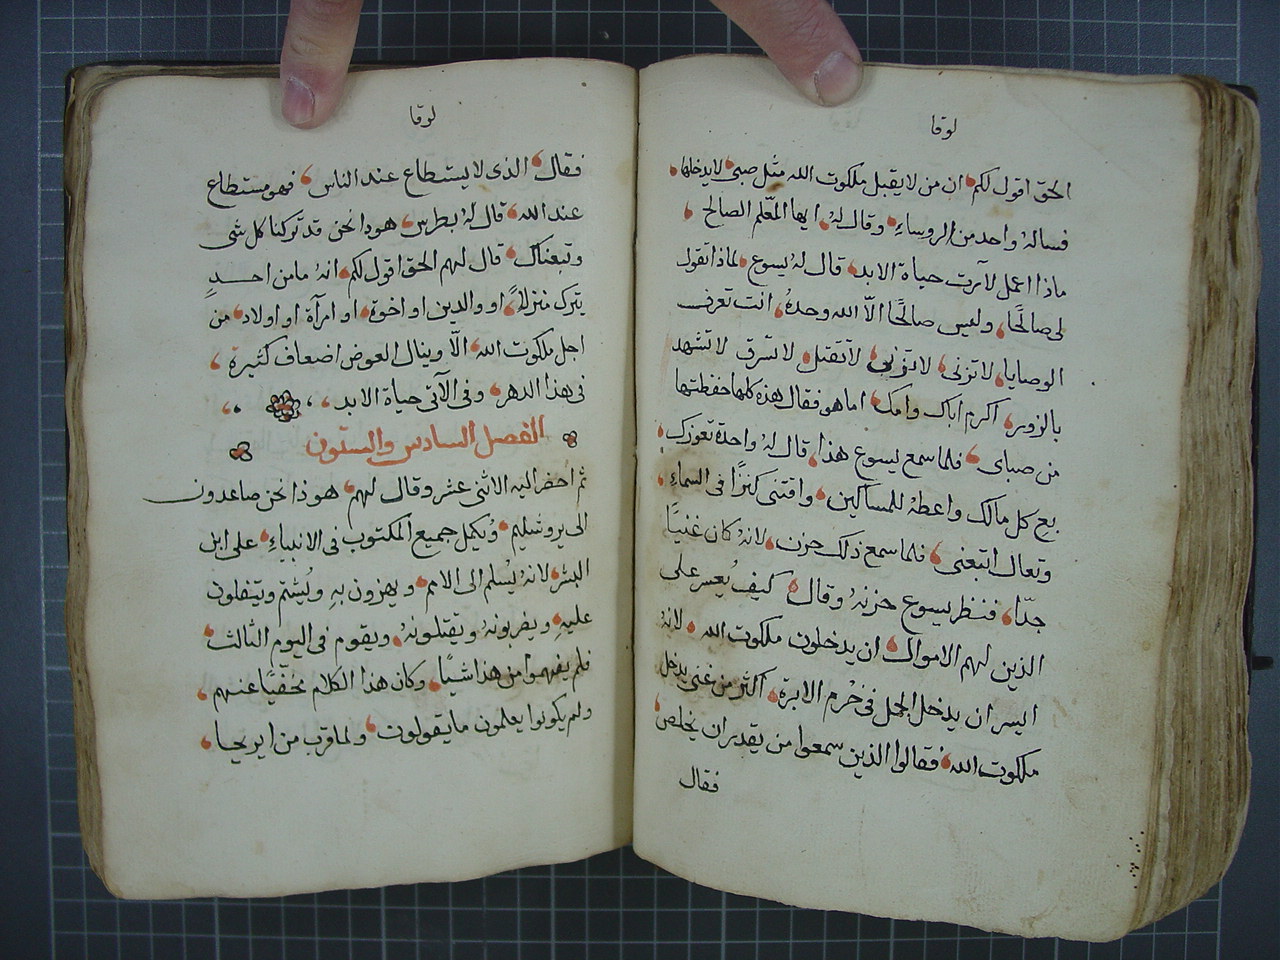 لوقا
الحق اقول لكم ان من لا يقبل ملكوت الله مثل صبى لا يدخلها
فساله واحد من الروساءِ وقال لهُ ايها المعّلم الصالح
ماذا اعمل لآرث حياة الابد قال لهُ يسوع لماذا تقول
لى صالحًا وليس صالحًا الّا الله وحدهُ انت تعرف
الوصايا لا تزنى لا تقتل لا تسرق لا تشهد
بالزور اكرم اباك وامك اما هو فقال هذه كلها حفظتها
من صباى فلما سمع يسوع هذا قال لهُ واحدة تعوزك
بع كل مالك واعطهٔ للمساكين واقتنى كنزًا فى السماءِ
وتعال اتبعنى فلما سمع ذلك حزن لانهُ كان غنيًا
جدًا فنظر يسوع حزنهُ وقال كيف يُعسر على
الذين لهم الاموال ان يدخلون ملكوت الله لانهُ
ايسر ان يدخل الجمل فى خُرم الابرة اكثر من غنى يدخل
ملكوت الله فقالوا الذين سمعوا من يقدر ان يخلص
فقال
لوقا
فقال الذى لا يستطاع عند الناس فهو مستطاع
عند الله قال لهُ بطرس هوذا نحن قد تركنا كل شى
وتبعناك قال لهم الحق اقول لكم انهُ ما من احدٍ
يترك منزلاً او والدين او اخوة او امرآة او اولاد من
اجل ملكوت الله الّا وينال العوض اضعاف كثيرة
فى هذا الدهر وفى الآتى حياة الابد
الفصل السادس والستون
ثم احضر اليه الاثنى عشر وقال لهم هوذا نحن صاعدون
الى يروشليم ويُكمل جميع المكتوب فى الانبياءِ على ابن
البشر لانهُ يُسلم الى الامم ويهزون بهِ ويُشتم ويتفلون
عليهِ ويضربونهُ ويقتلونهُ ويقوم فى اليوم الثالث
فلم يفهموا من هذا شيًا وكان هذا الكلام مخفيًا عنهم
ولم يكونوا يعلمون ما يقولون ولما قرب من ايريحا